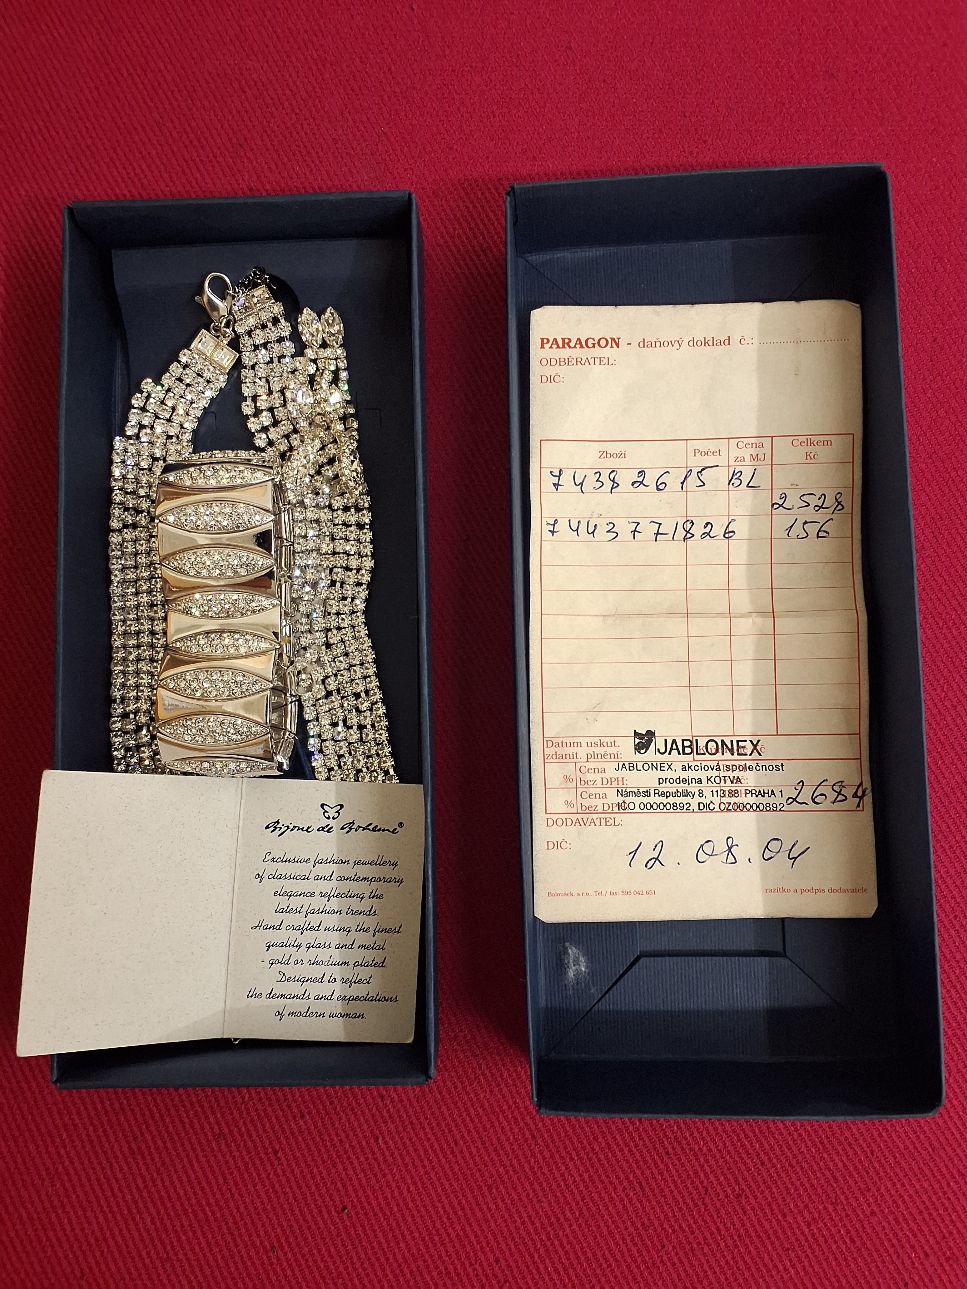 Bijoux de Bohème®
Exclusive fashion jewellery
of classical and contemporary
elegance reflecting the
latest fashion trends.
Hand crafted using the finest
quality glass and metal
- gold or rhodium plated.
Designed to reflect
the demands and expectations
of modern woman.
PARAGON - daňový doklad č.: ..............................
ODBĚRATEL:
DIČ:
Zboží Počet Cena za MJ Celkem Kč
7438 26 15 BL -
2528
7443771826 156
Datum uskut.
zdanit. plnění:
JABLONEX
JABLONEX, akciová společnost
prodejna KOTVA
Náměstí Republiky 8, 113 88 PRAHA 1
IČO 00000892, DIČ CZ00000892
% Cena
bez DPH:
% Cena
bez DPH
2684
DODAVATEL:
DIČ:
12. 08. 04
Tel./ fax: 595 042 651
razítko a podpis dodavatele